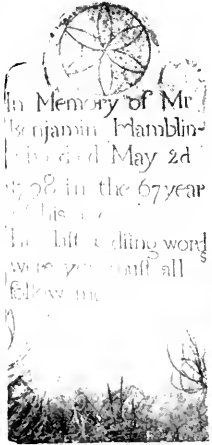 In Memory of Mr
Benjamin Hamblin
died May 2d
in the 67 year
of his
last dying words
were you must all
follow me